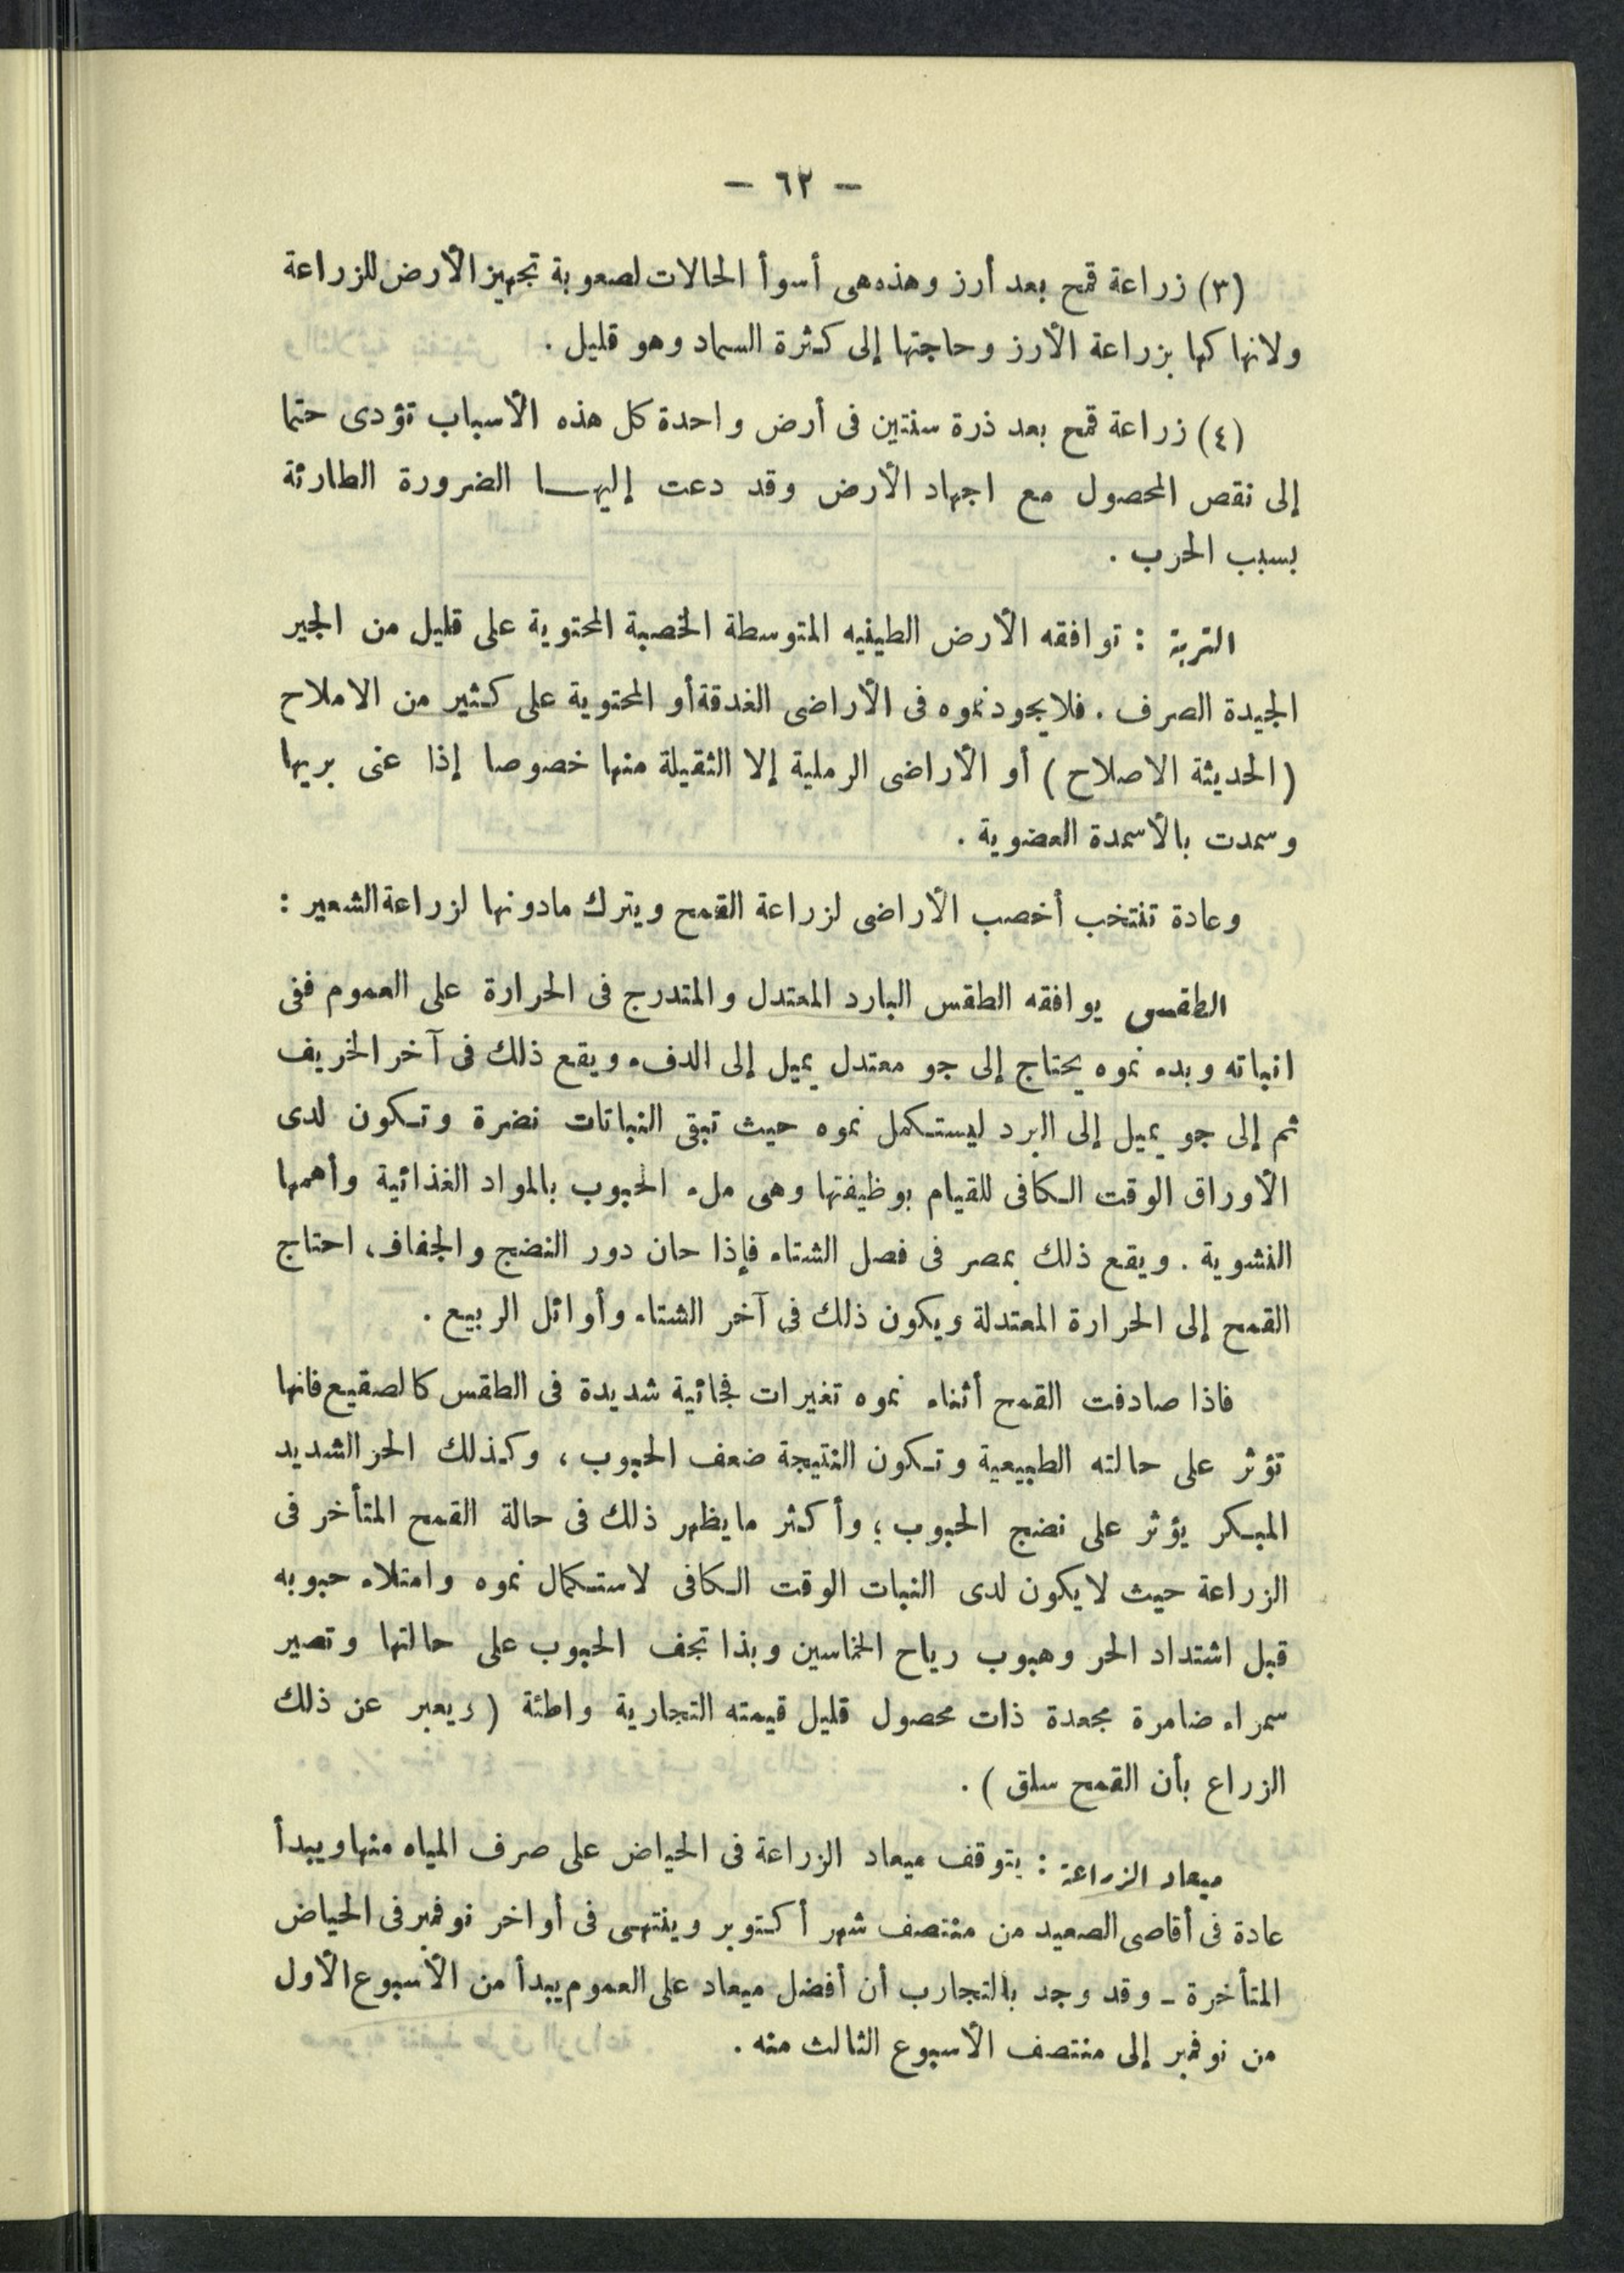 — ٦٢ —
(٣) زراعة قمح بعد أرز وهذه هى أسوأ الحالات لصعوبة تجهيز الأرض للزراعة
ولانهاكها بزراعة الأرز وحاجتها إلى كثرة السماد وهو قليل .
(٤) زراعة قمح بعد ذرة سنتين فى أرض واحدة كل هذه الأسباب تؤدى حتما
إلى نقص المحصول مع اجهاد الأرض وقد دعت إليها الضرورة الطارئة
بسبب الحرب .
التربة : توافقه الأرض الطينيه المتوسطة الخصبة المحتوية على قليل من الجير
الجيدة الصرف . فلا يجود نموه فى الأراضى الغدقة أو المحتوية على كثير من الاملاح
(الحديثة الاصلاح) أو الأراضى الرملية إلا الثقيلة منها خصوصا إذا عنى بريها
وسمدت بالأسمدة العضوية .
وعادة تنتخب أخصب الأراضى لزراعة القمح ويترك مادونها لزراعة الشعير :
الطقس يوافقه الطقس البارد المعتدل والمتدرج فى الحرارة على العموم ففى
انباته وبدء نموه يحتاج إلى جو معتدل يميل إلى الدفء ويقع ذلك فى آخر الخريف
ثم إلى جو يميل إلى البرد ليستكمل نموه حيث تبقى النباتات نضرة وتكون لدى
الأوراق الوقت الكافى للقيام بوظيفتها وهى ملء الحبوب بالمواد الغذائية وأهمها
النشوية . ويقع ذلك بمصر فى فصل الشتاء فإذا حان دور النضج والجفاف، احتاج
القمح إلى الحرارة المعتدلة ويكون ذلك فى آخر الشتاء وأوائل الربيع .
فاذا صادفت القمح أثناء نموه تغيرات فجائية شديدة فى الطقس كالصقيع فانها
تؤثر على حالته الطبيعية وتكون النتيجة ضعف الحبوب ، وكذلك الحر الشديد
المبكر يؤثر على نضج الحبوب ؛ وأكثر مايظهر ذلك فى حالة القمح المتأخر فى
الزراعة حيث لا يكون لدى النبات الوقت الكافى لاستكمال نموه وامتلاء حبوبه
قبل اشتداد الحر وهبوب رياح الخماسين وبذا تجف الحبوب على حالتها وتصير
سمراء ضامرة مجعدة ذات محصول قليل قيمته التجارية واطئة (ويعبر عن ذلك
الزراع بأن القمح سلق ) .
ميعاد الزراعة : يتوقف ميعاد الزراعة فى الحياض على صرف المياه منها ويبدأ
عادة فى أقاصى الصعيد من منتصف شهر أكتوبر وينتهى فى أواخر نوفمبر فى الحياض
المتأخرة ـ وقد وجد بالتجارب أن أفضل ميعاد على العموم يبدأ من الأسبوع الأول
من نوفمبر إلى منتصف الأسبوع الثالث منه .